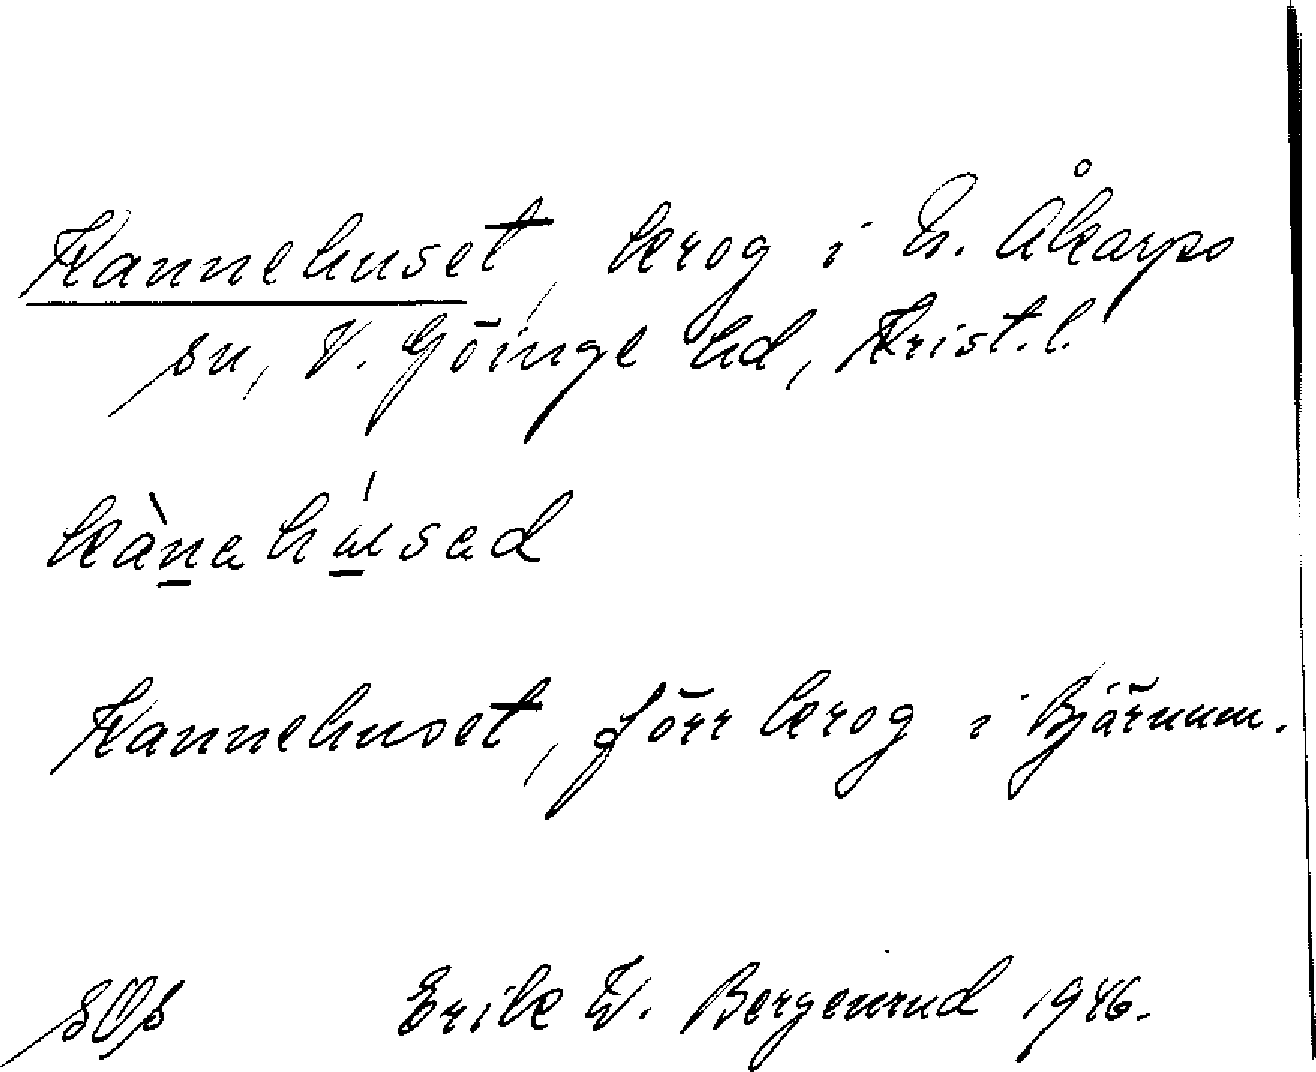 Kannehuset, krog i N. Åkarps
sn, V. Göinge hd, Krist. l.
kànahúsad
Kannehuset, förr krog i Bjärnum.
Erik W. Bergenrud 1946.